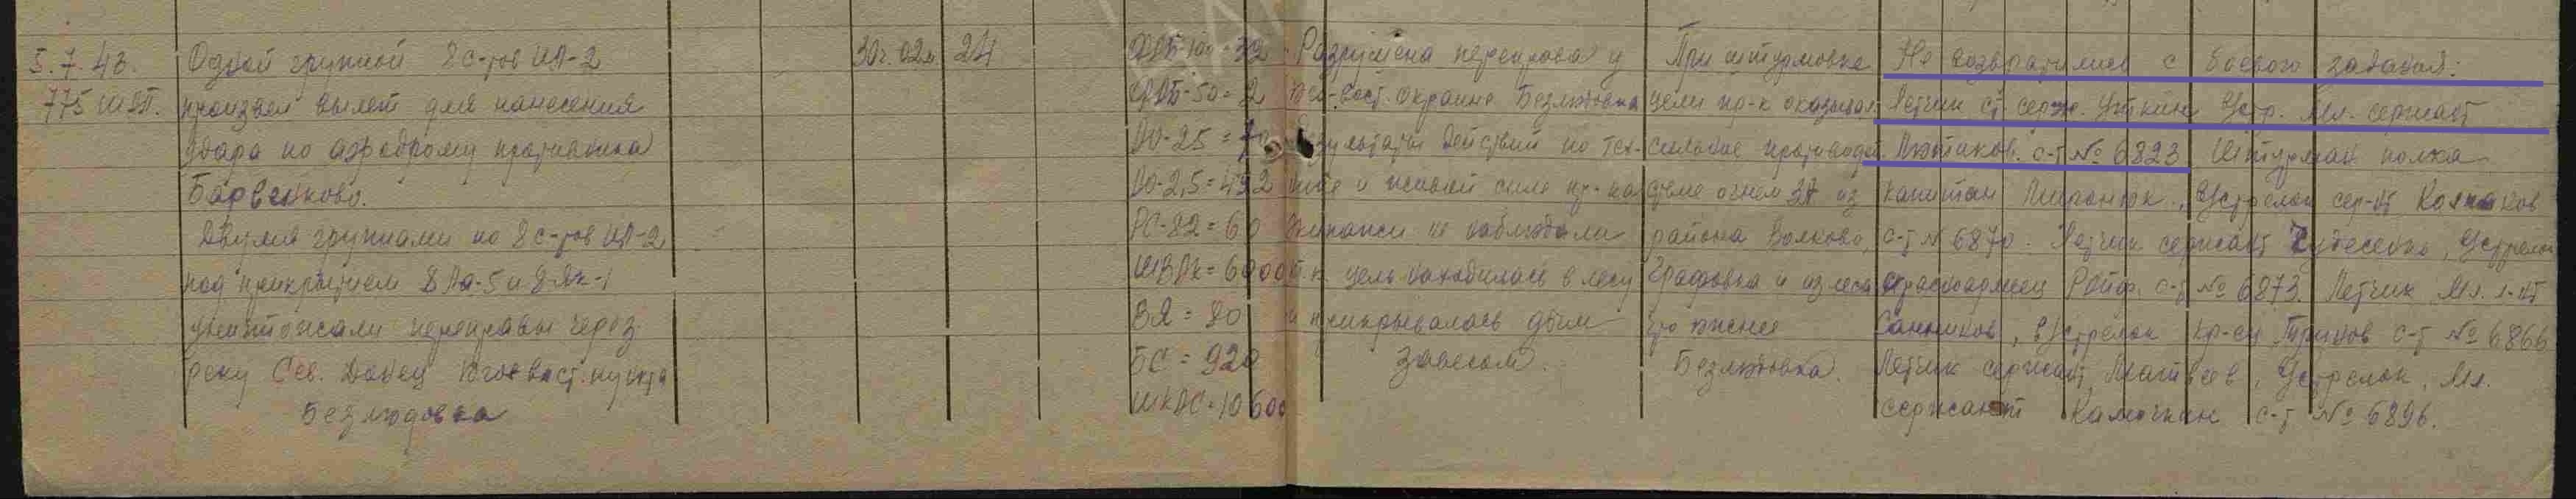 5.7.43.
775 ШАП.
Одной группой 8 с-тов ИЛ-2
произвел вылет для нанесения
удара по аэродрому противника
Барвенково.
Двумя группами по 8 с-тов ИЛ-2
под прикрытием 8 Ла-5 и 8 Як-1
уничтожали переправы через
реку Сев. Донец Юго вост. пункта
Безлюдовка
30ч. 02м.
24
ФАБ-100 = 32
ФАБ-50 = 2
АО-25 =
АО-2,5 = 492
РС-82 = 60
ШВАК = 6000
ВЯ = 80
БС = 920
ШКАС = 10600
Разрушена переправа у
юго-вост. окраине Безлюдовка
Результаты действий по тех-
нике и живой силе пр-ка
экипажи не наблюдали
т.к. цель находилась в лесу
и прикрывалась дым
завесой.
При штурмовке
цели пр-к оказывал
сильное противодей
ствие огнем ЗА из
района Волково,
Графовка и из леса
южнее
Безлюдовка.
Не возвратились с боевого задания:
Летчик ст. серж. Уткин Устр. мл. сержант
Плотиков. с-т № 6823 Штурман полка
капитан Миронюк, Устрелок сер-нт Колпаков
с-т № 6870. Летчик сержант Чудесенко, Устрелок
красноармеец с-т № 6873. Летчик мл. л-нт
Санников, В/стрелок кр-ец с-т № 6866
Летчик сержант Матвеев, Устрелок, мл.
сержант Камочкин с-т № 6896.